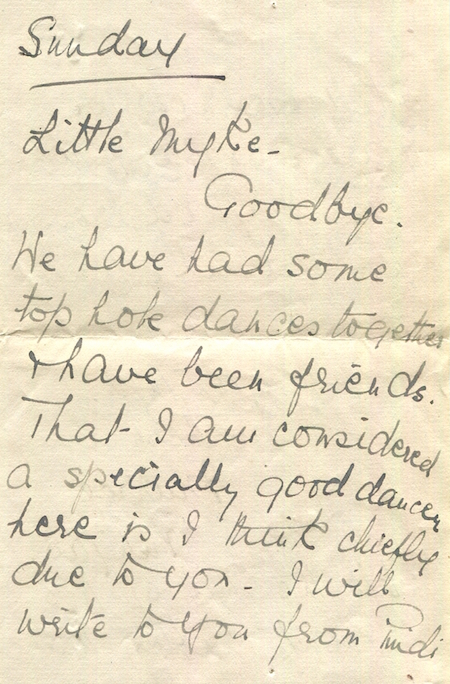 Sunday
Little Myke -
Goodbye.
We have had some
top hole dances together
& have been friends.
That I am considered
a specially good dancer
here is I think chiefly
due to you - I will
write to you from Pindi